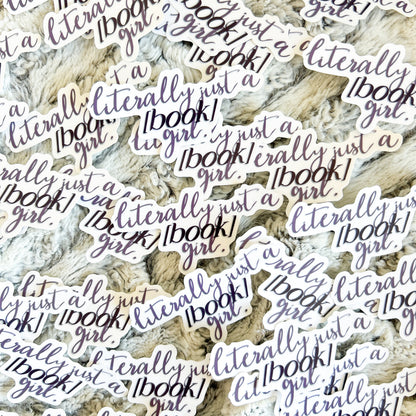 literally just a
[book]
girl.
literally just a
[book]
girl.
literally just a
[book]
girl.
literally just a
[book]
girl.
literally just a
[book]
girl.
literally just a
[book]
girl.
literally just a
[book]
girl.
literally just a
[book]
girl.
literally just a
[book]
girl.
literally just a
[book]
girl.
literally just a
[book]
girl.
literally just a
[book]
girl.